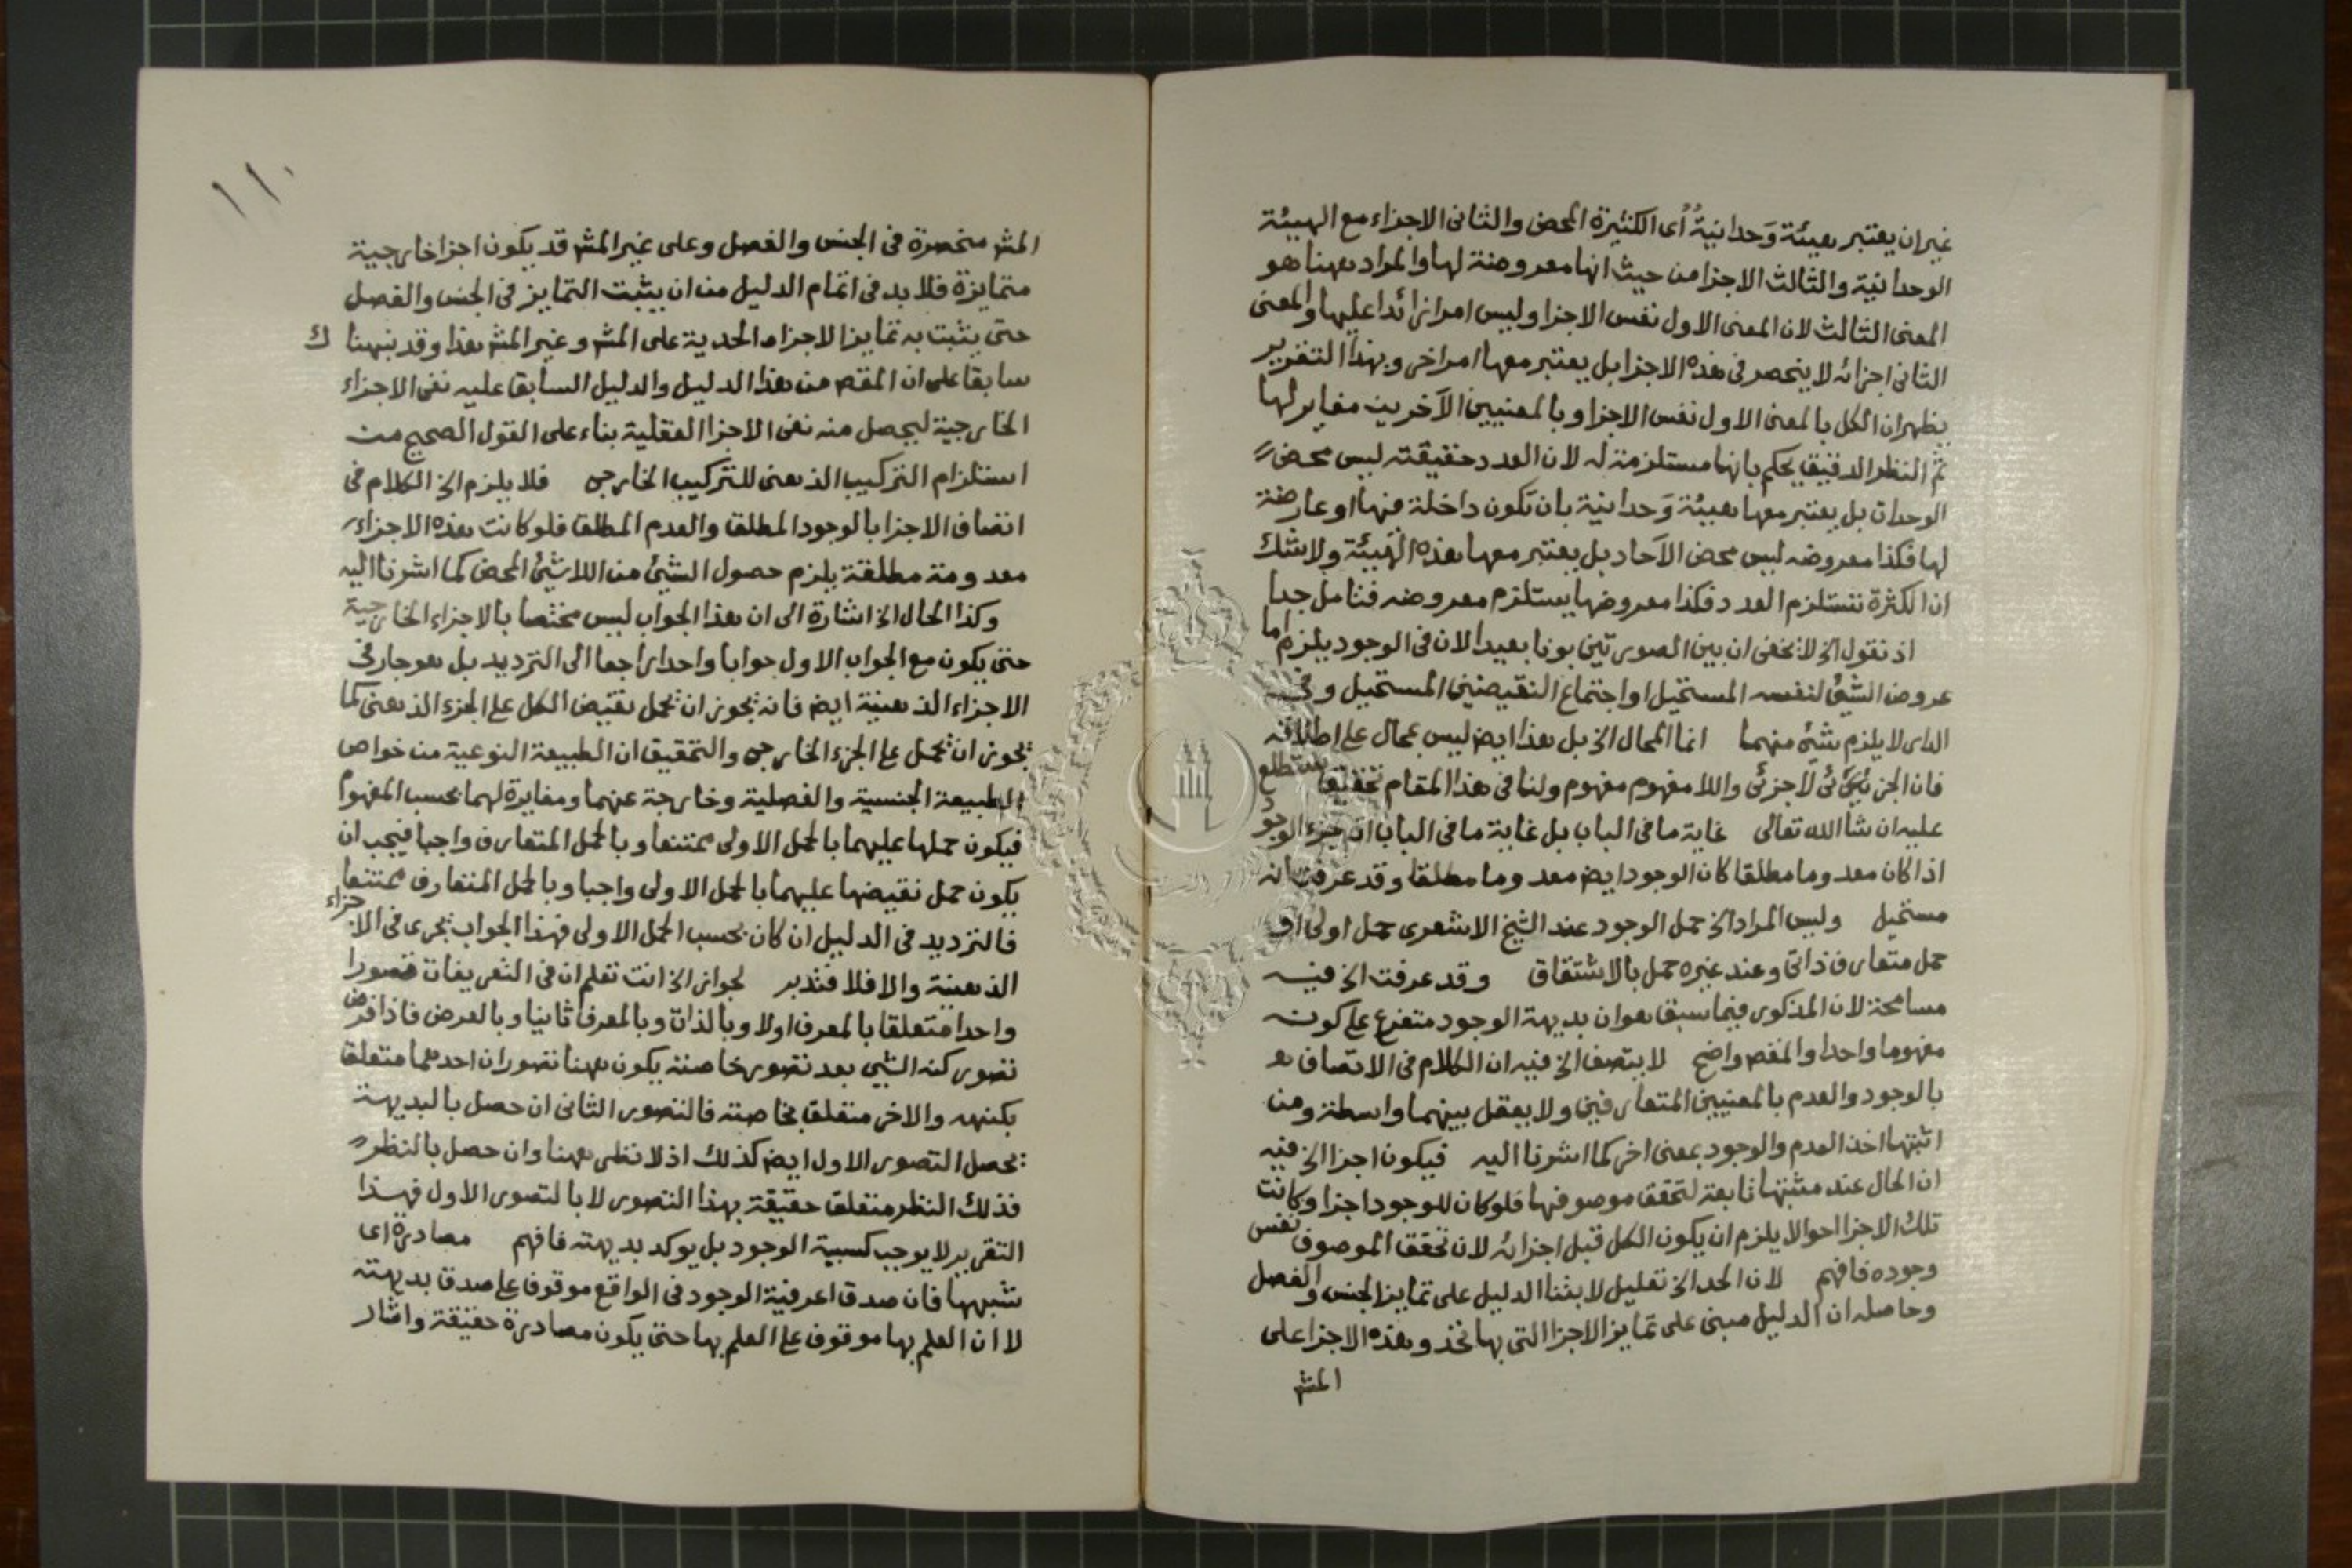 غيران يعتبر هيئة وَحدانيةٌ أى الكثيرة المحض والثانى الاجزاء مع الهيئة
الوحدانية والثالث الاجزا من حيث انها معروضة لها والمراد ههنا هو
المعنى الثالث لان المعنى الاول نفس الاجزا وليس امرا زائدا عليها والمعنى
الثانى اجزائه لا ينحصر فى هذه الاجزا بل يعتبر معها امر اخر وبهذا التقرير
يظهران الكل بالمعنى الاول نفس الاجزا وبالمعنيين الآخرين مغاير لها
ثم النظر الدقيق يحكم بانها مستلزمة له لان العدد حقيقته ليس محض
الوحدات بل يعتبر معها هيئة وَحدانية بان تكون داخلة فيها او عارضة
لها فكذا معروضه ليس محض الآحاد بل يعتبر معها هذه الهَيئة ولا شك
ان الكثرة تستلزم العدد فكذا معروضها يستلزم معروضه فتامل جدا
اذ نقول الخ لا يخفى ان بين الصورتين بونا بعيدا لان فى الوجود يلزم اما
عروض الشئ لنفسه المستحيل او اجتماع النقيضين المستحيل وفى
الدار لا يلزم شئ منهما انما المحال الخ بل هذا ايضا ليس بمحال على اطلاقه
فان الجزئى لا جزئى واللا مفهوم مفهوم ولنا فى هذا المقام تحقيق ستطلع
عليه ان شا الله تعالى غاية ما فى الباب بل غاية ما فى الباب ان جزء الوجود
اذا كان معدوما مطلقا كان الوجود ايض معدوما مطلقا وقد عرفت انه
مستحيل وليس المراد الخ حمل الوجود عند الشيخ الاشعرى حمل اولى او
حمل متعارف ذاتى وعند غيره حمل بالاشتقاق وقد عرفت الخ فيه
مسامحة لان المذكور فيما سبق هو ان بديهة الوجود متفرع على كونه
مفهوما واحدا والمقص واضح لا يتصف الخ فيه ان الكلام فى الاتصاف هو
بالوجود والعدم بالمعنيين المتعارفين ولا يعقل بينهما واسطة ومن
اثبتها اخذ العدم والوجود بمعنى اخر كما اشرنا اليه فيكون اجزا الخ فيه
ان الحال عند مثبتها تابعة لتحقق موصوفها فلو كان للوجود اجزا وكانت
تلك الاجزا احوالا يلزم ان يكون الكل قبل اجزائه لان تحقق الموصوف نفس
وجوده فافهم لان الحد الخ تعليل لابتنا الدليل على تمايز الجنس والفصل
وحاصله ان الدليل مبنى على تمايز الاجزا التى بها تحد وهذه الاجزا على
المش
١١٠
المش منحصرة فى الجنس والفصل وعلى غير المش قد يكون اجزا خارجية
متمايزة فلا بد فى اتمام الدليل من ان يثبت التمايز فى الجنس والفصل
حتى يثبت به تمايز الاجزاء الحدية على المش وغير المش هذا وقد نبهنا ك
سابقا على ان المقص من هذا الدليل والدليل السابق عليه نفى الاجزاء
الخارجية ليحصل منه نفى الاجزا العقلية بناء على القول الصحيح من
استلزام التركيب الذهنى للتركيب الخارجى فلا يلزم الخ الكلام فى
اتصاف الاجزا بالوجود المطلق والعدم المطلق فلو كانت هذه الاجزاء
معدومة مطلقة يلزم حصول الشئ من اللاشئ المحض كما اشرنا اليه
وكذا الحال الخ اشارة الى ان هذا الجواب ليس مختصا بالاجزاء الخارجية
حتى يكون مع الجواب الاول جوابا واحدا راجعا الى الترديد بل هو جار فى
الاجزاء الذهنية ايض فانه يجوز ان يحمل نقيض الكل على الجزء الذهنى كما
يجوز ان يحمل على الجزء الخارجى والتحقيق ان الطبيعة النوعية من خواص
الطبيعة الجنسية والفصلية وخارجة عنهما ومغايرة لهما بحسب المفهوم
فيكون حملها عليهما بالحمل الاولى ممتنعا وبالحمل المتعارف واجبا فيجب ان
يكون حمل نقيضها عليهما بالحمل الاولى واجبا وبالحمل المتعارف ممتنعا
فالترديد فى الدليل ان كان بحسب الحمل الاولى فهذا الجواب يجرى فى الاجزاء
الذهنية والا فلا فتدبر لجواز الخ انت تعلم ان فى التعريفات تصورا
واحدا متعلقا بالمعرف اولا وبالذات وبالمعرف ثانيا وبالعرض فاذا فرض
تصور كنه الشى بعد تصور خاصته يكون ههنا تصوران احدهما متعلق
بكنهه والاخر متعلق بخاصته فالتصور الثانى ان حصل بالبديهة
يحصل التصور الاول ايض كذلك اذ لا نظر ههنا وان حصل بالنظر
فذلك النظر متعلق حقيقة بهذا التصور لا بالتصور الاول فهذا
التقرير لا يوجب كسبية الوجود بل يوكد بديهته فافهم مصادرة اى
شبهها فان صدق اعرفية الوجود فى الواقع موقوف على صدق بديهته
لا ان العلم بها موقوف على العلم بها حتى يكون مصادرة حقيقة واشار